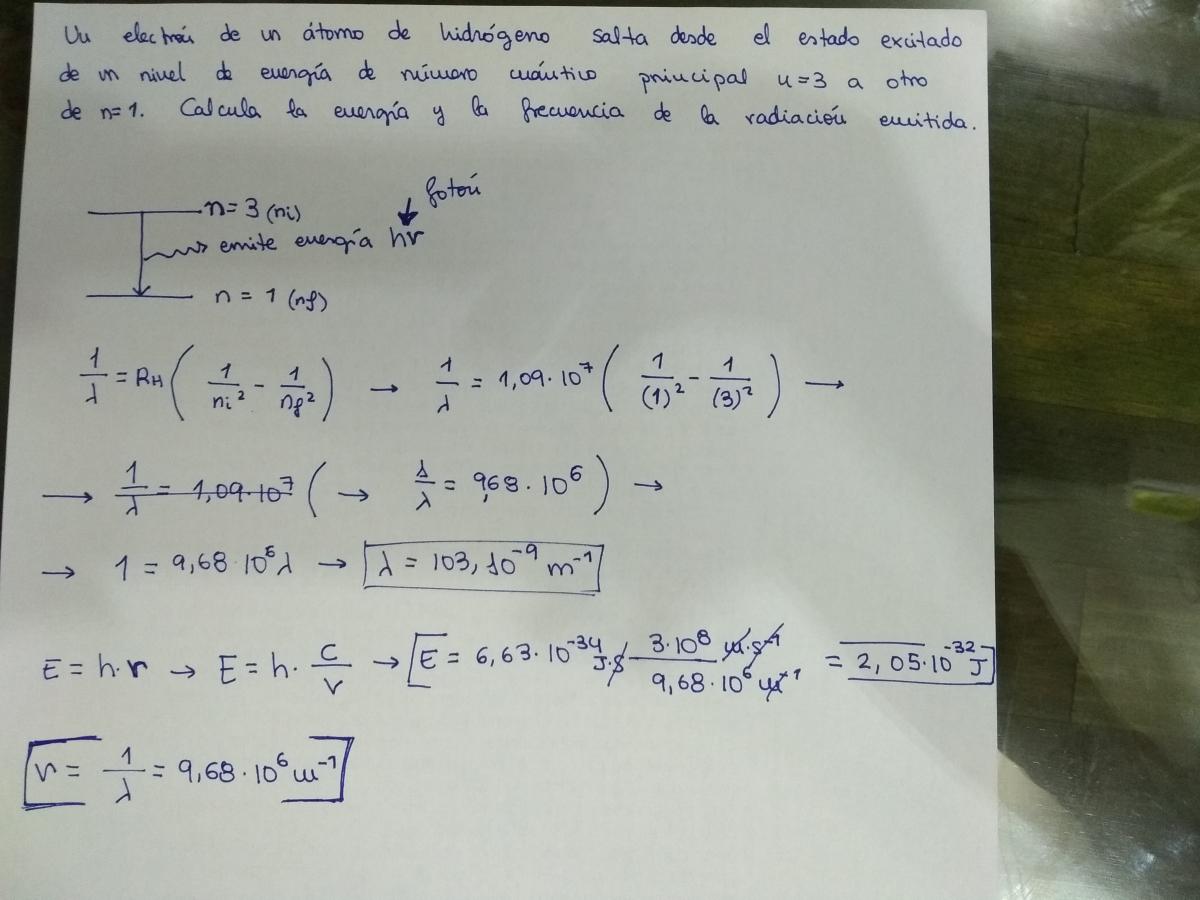 Un electrón de un átomo de hidrógeno salta desde el estado excitado
de un nivel de energía de número cuántico principal n=3 a otro
de n=1. Calcula la energía y la frecuencia de la radiación emitida.
fotón
n=3 (ni)
emite energía hν
n = 1 (nf)
1/λ = RH (1/ni² - 1/nf²) → 1/λ = 1,09·10⁷ (1/(1)² - 1/(3)²) →
→ 1/λ = 1,09·10⁷ ( → 1/λ = 9,68·10⁶ ) →
→ 1 = 9,68·10⁶ λ → λ = 103,10⁻⁹ m⁻¹
E = h·ν → E = h· c/ν → E = 6,63·10⁻³⁴ J·s 3·10⁸ m·s⁻¹/9,68·10⁶ m⁻¹ = 2,05·10⁻³² J
ν = 1/λ = 9,68·10⁶ m⁻¹